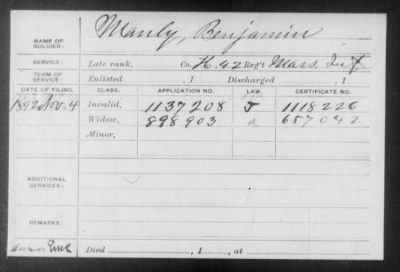 NAME OF SOLDIER: Manly, Benjamin
SERVICE: Late rank, Co. H. 42 Reg't Mass. Inf.
TERM OF SERVICE: Enlisted , 1 Discharged , 1
DATE OF FILING. CLASS. APPLICATION NO. LAW. CERTIFICATE NO.
1892 Nov. 4 Invalid, 1137208 J 1118226
Widow, 898903 a 657042
Minor,
ADDITIONAL SERVICES:
REMARKS:
Died , 1 , at